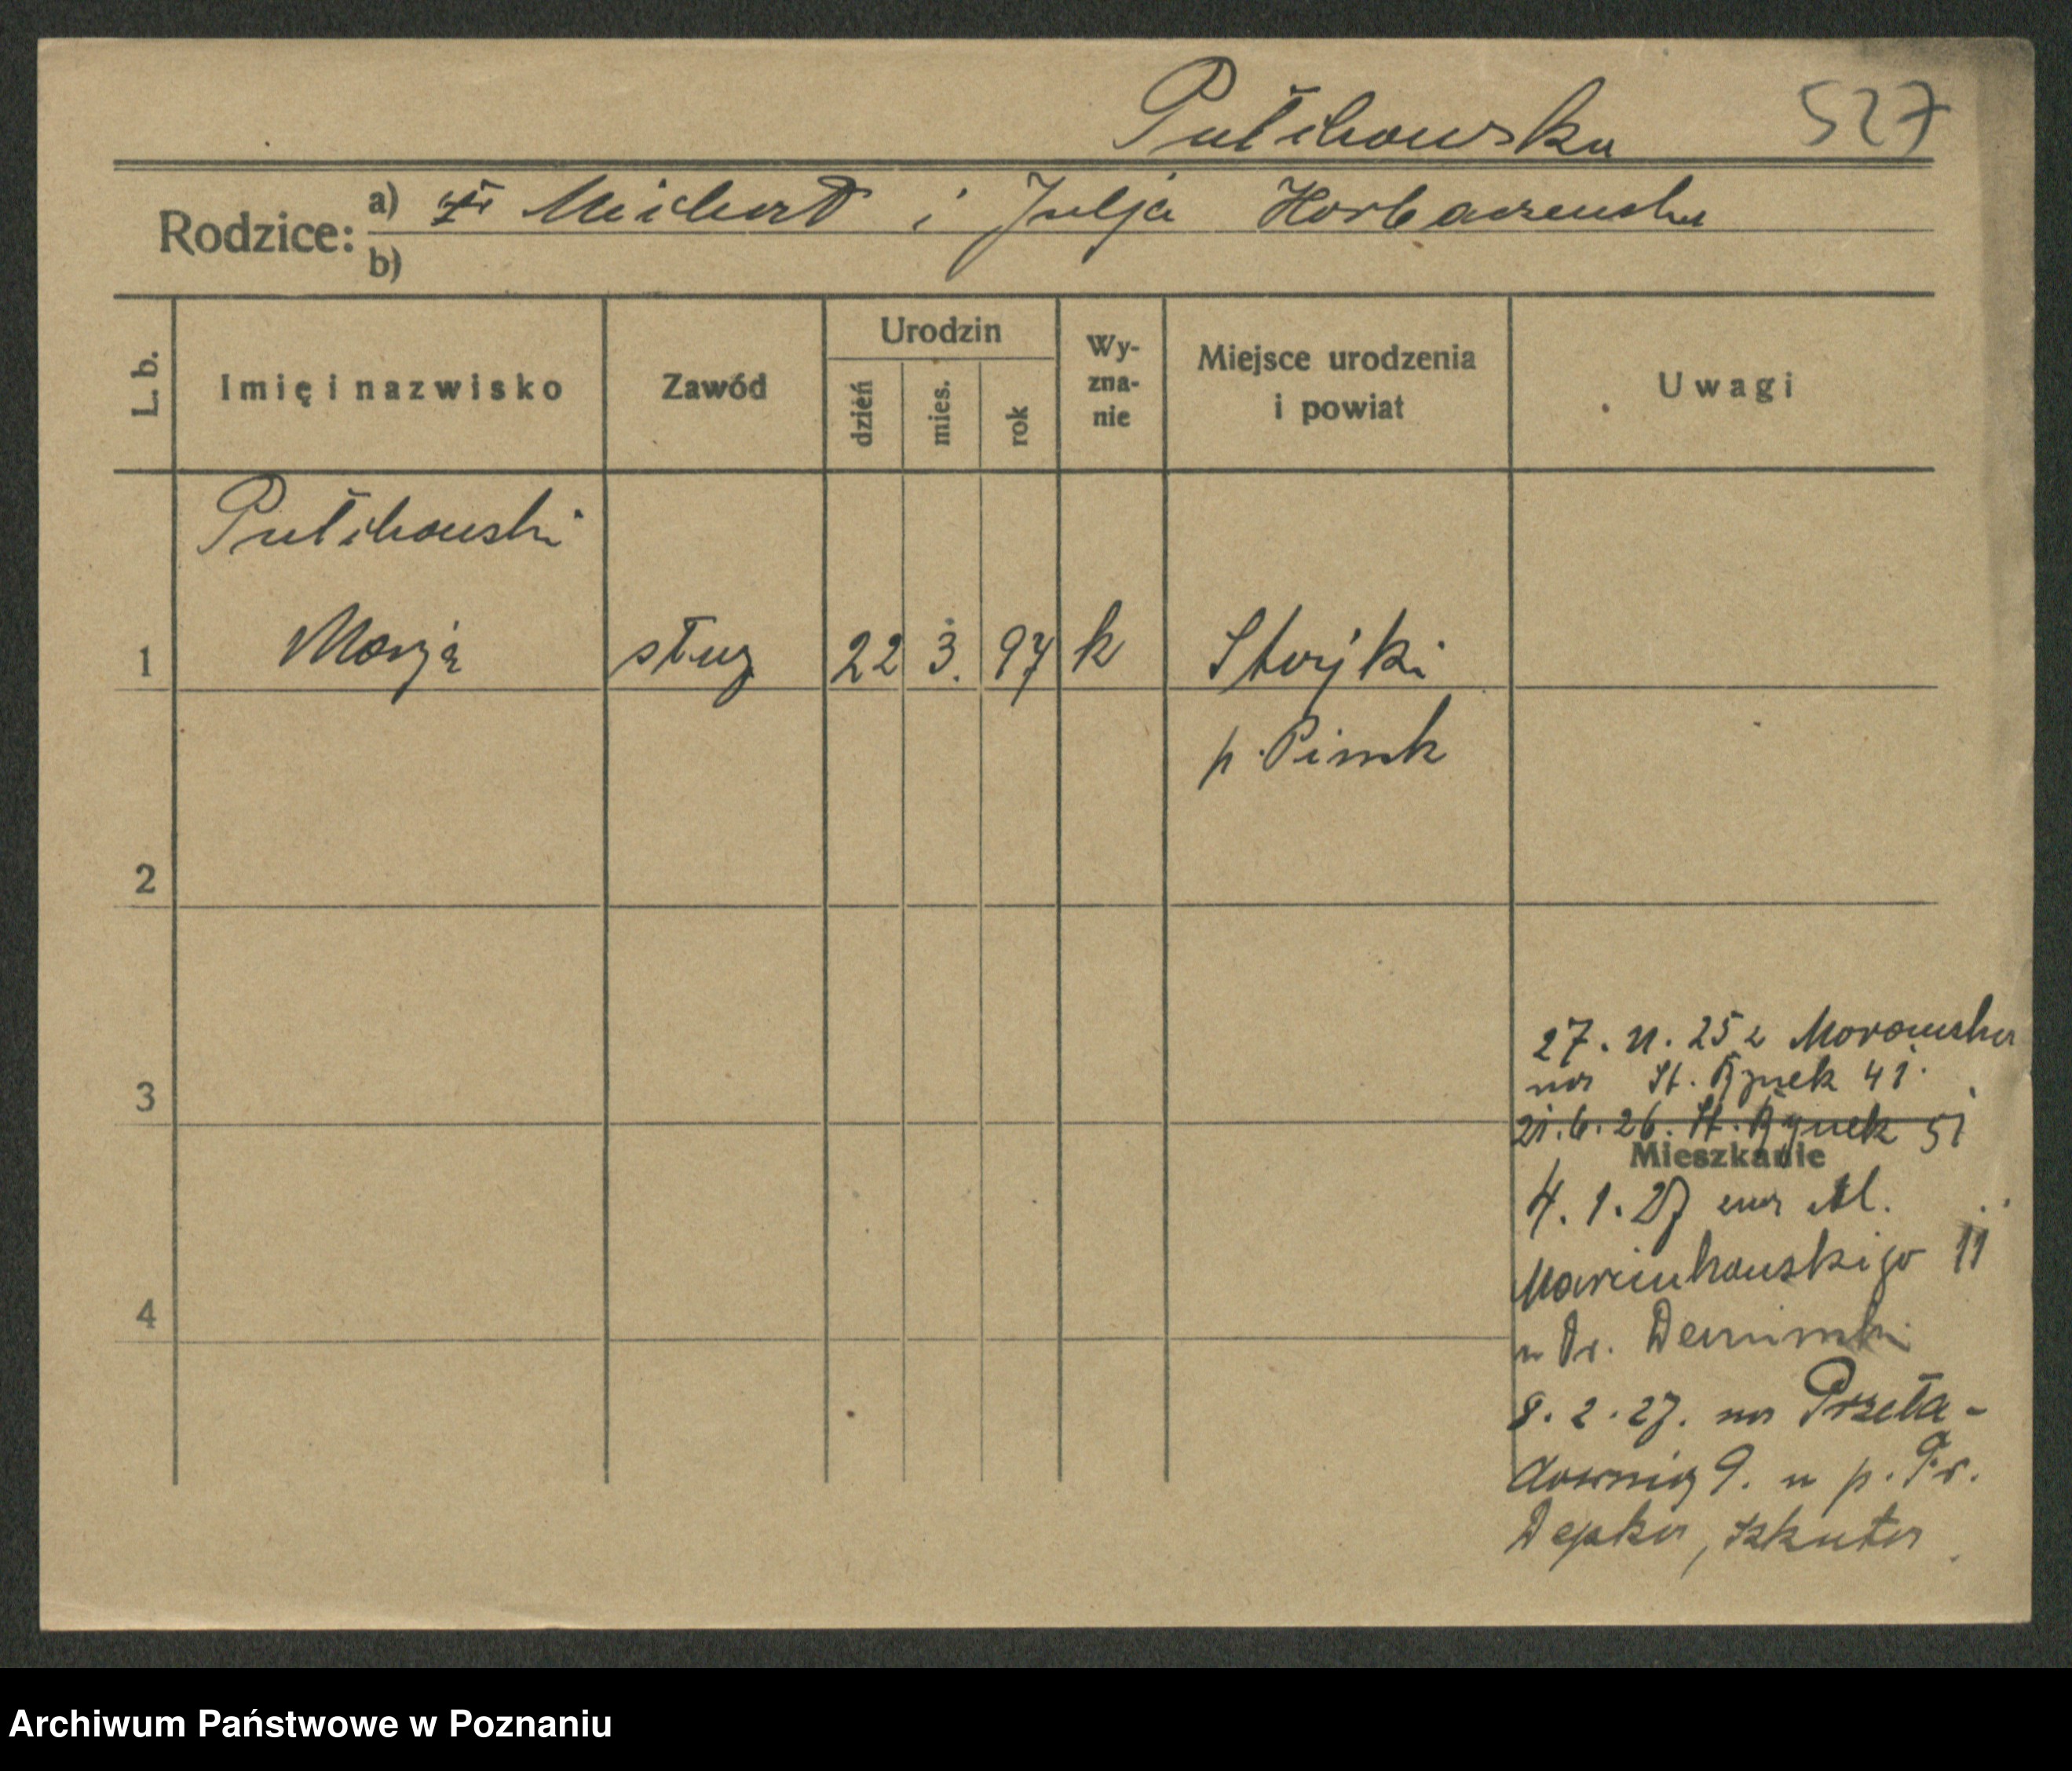 Pułikowska 527
Rodzice: a) Michał i Julja Horbaczewska
b)
L. b. Imię i nazwisko Zawód Urodzin dzień mies. rok Wy-zna-nie Miejsce urodzenia i powiat Uwagi
Pułikowski
1 Marja służ 22 3. 97 k Stojki
p. Pinsk
2
27. 11. 25 z Morowska
3 na St. Rynek 41.
21.6.26. St. Rynek 51
Mieszkanie
4. 1. 27 na Al.
Marcinkowskiego 11
4 u Dr.
8. 2. 27. na Przeła-
downią 9. u p. Fr.
Depka,
Archiwum Państwowe w Poznaniu